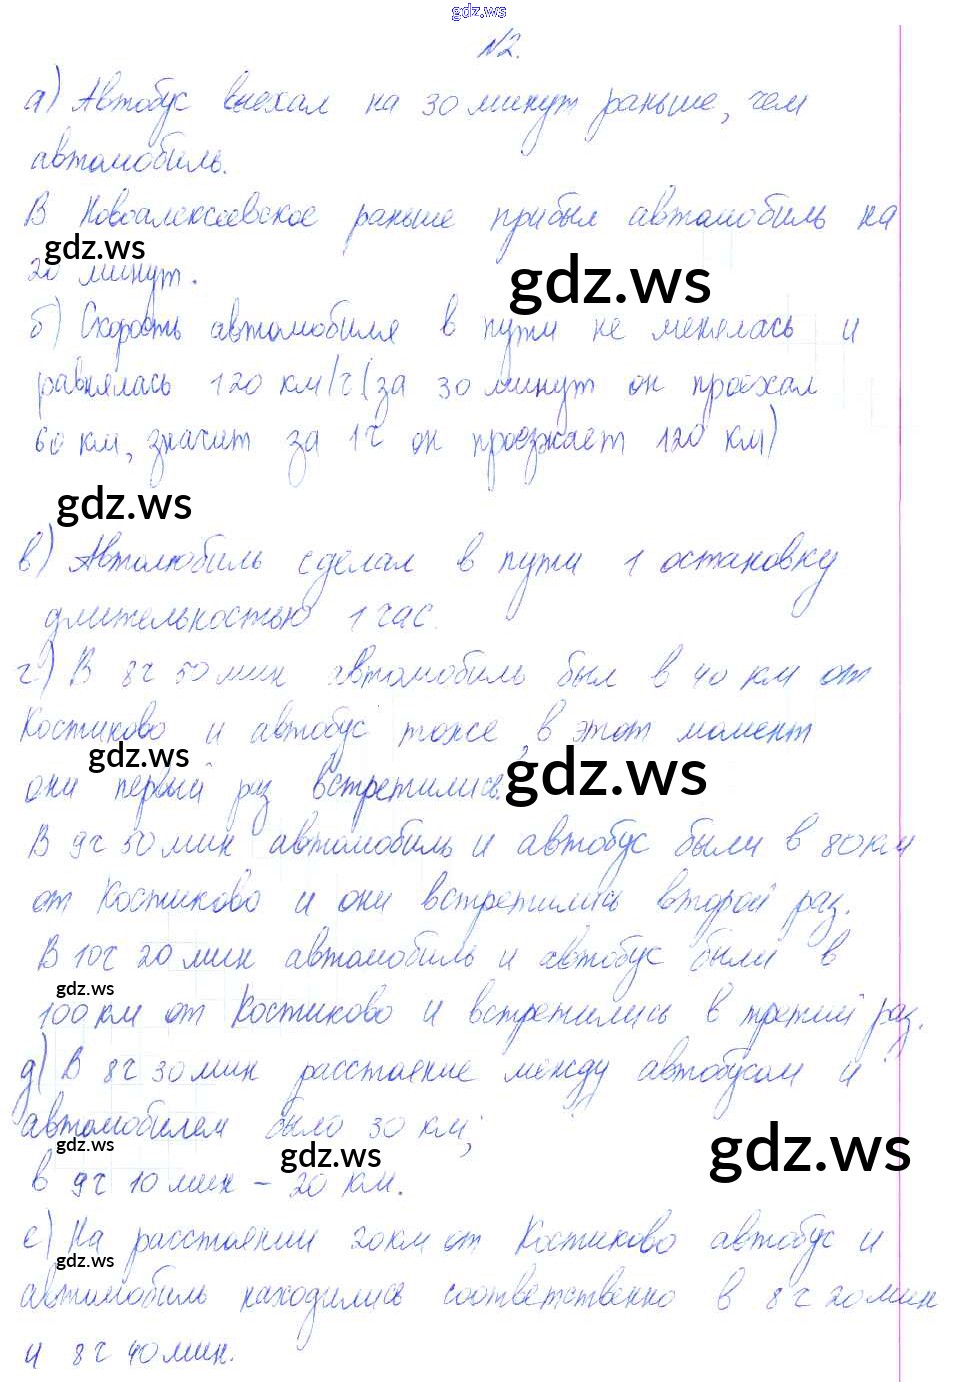 gdz.ws
№2.
а) Автобус выехал на 30 минут раньше, чем
автомобиль.
В Новоалексеевское раньше прибыл автомобиль на
gdz.ws
20 минут.
gdz.ws
б) Скорость автомобиля в пути не менялась и
равнялась 120 км/ч (за 30 минут он проехал
60 км, значит за 1 ч он проезжает 120 км)
gdz.ws
в) Автомобиль сделал в пути 1 остановку
длительностью 1 час.
г) В 8ч 50 мин автомобиль был в 40 км от
Костиково и автобус тоже, в этот момент
gdz.ws
они первый раз встретились.
gdz.ws
В 9ч 50 мин автомобиль и автобус были в 80 км
от Костиково и они встретились второй раз.
В 10ч 20 мин автомобиль и автобус были в
gdz.ws
100 км от Костиково и встретились в третий раз.
д) В 8ч 30 мин расстояние между автобусом и
автомобилем было 30 км;
gdz.ws
gdz.ws
gdz.ws
в 9ч 10 мин – 20 км.
е) На расстоянии 20 км от Костиково автобус и
gdz.ws
автомобиль находились соответственно в 8ч 20 мин
и 8ч 40 мин.